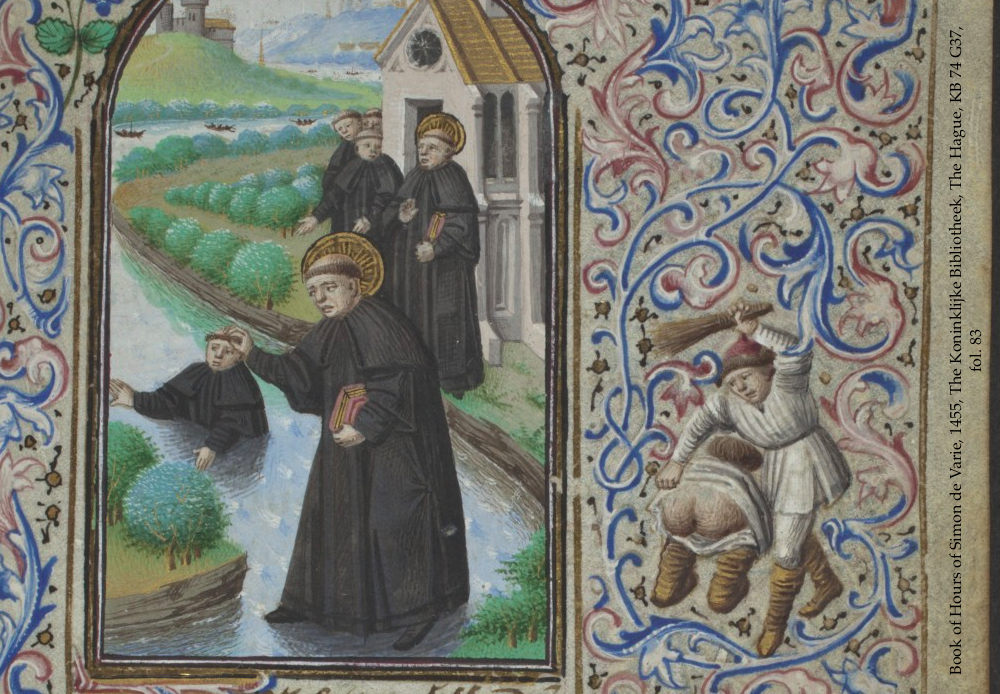 Book of Hours of Simon de Varie, 1455, The Koninklijke Bibliotheek, The Hague, KB 74 G37,
fol. 83